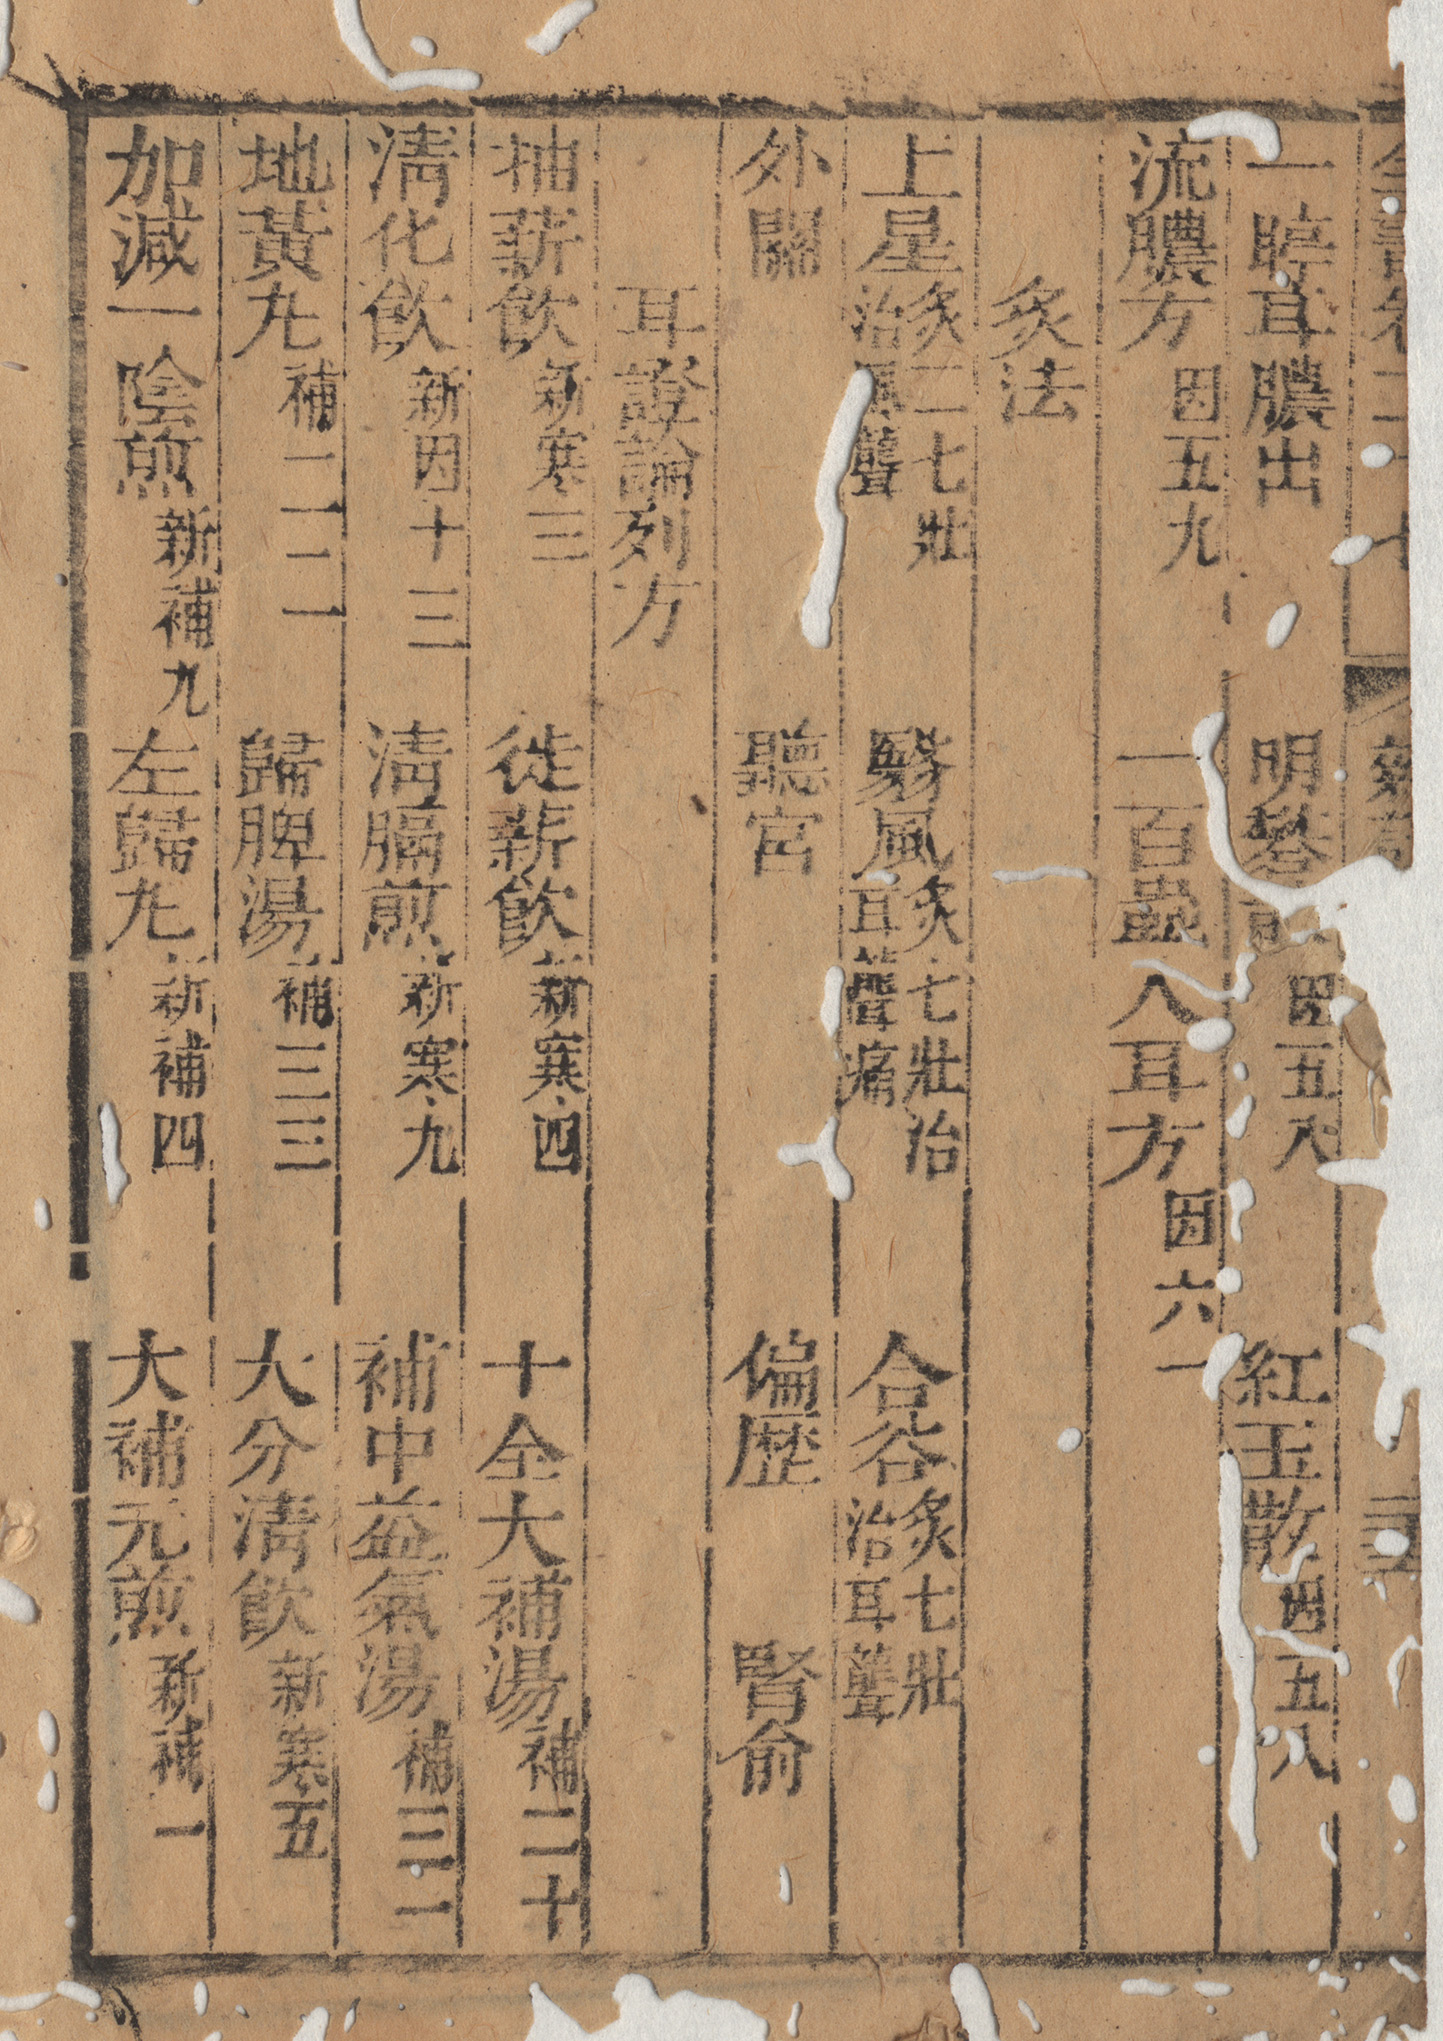 一聤耳膿出 明礬 因五八 紅玉散因五八
流膿方因五九 一百蟲入耳方因六一
灸法
上星灸二七壯治風聾 翳風灸七壯治耳聾痛 合谷灸七壯治耳聾
外關 聽宮 偏歷 腎俞
耳證論列方
抽薪飲新寒三 徙薪飲新寒四 十全大補湯補二十
清化飲新因十三 清膈煎新寒九 補中益氣湯補三一
地黄丸補一二一 歸脾湯補三三 大分清飲新寒五
加減一陰煎新補九 左歸丸新補四 大補元煎新補一